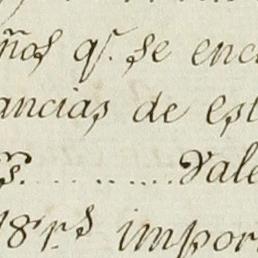 ños q.e se enc
ancias de est
s. .......... Vale
18 r.s impor